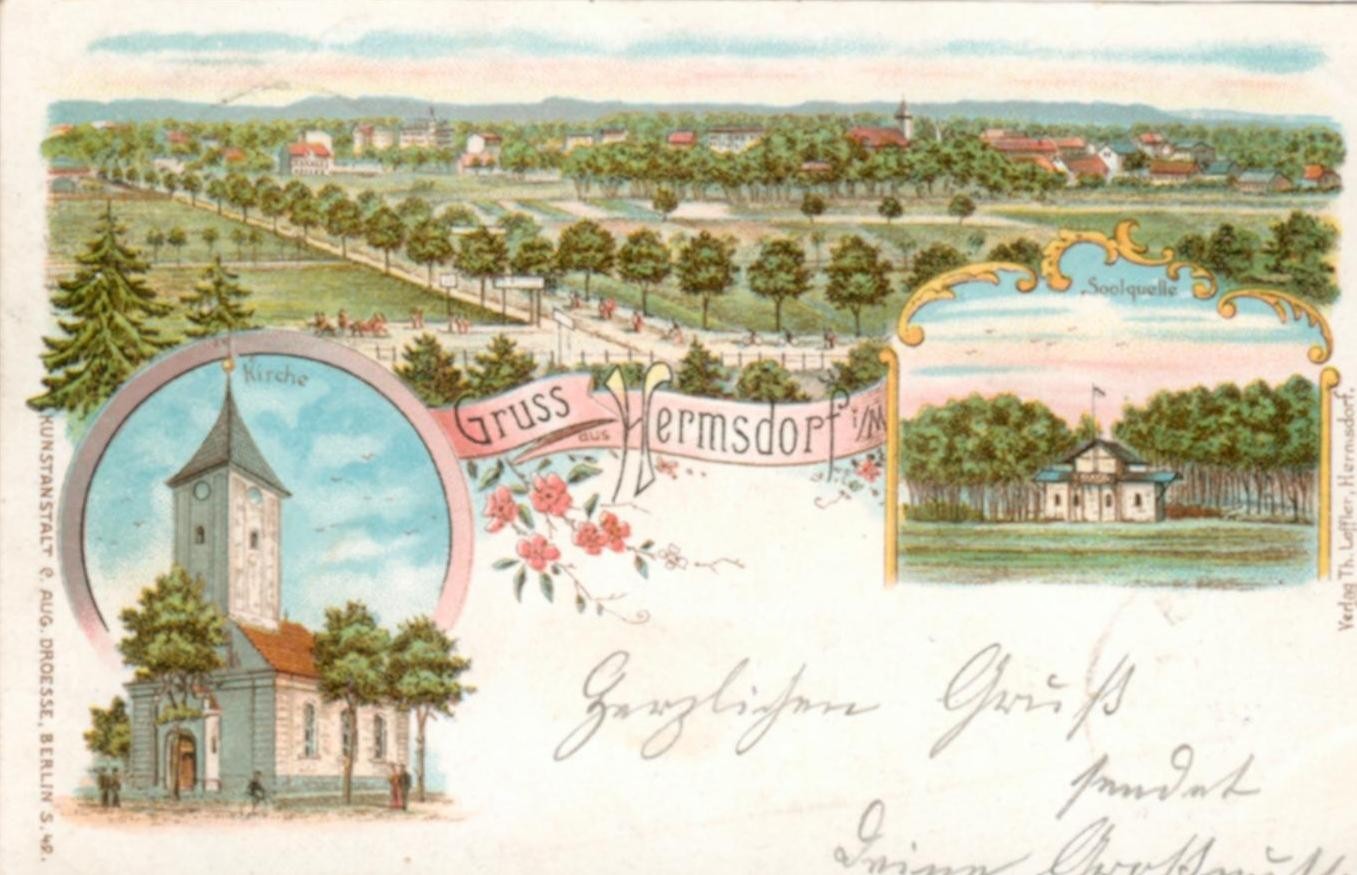 Soolquelle
Kirche
Gruss aus Hermsdorf i/M
KUNSTANSTALT C. AUG. DROESSE, BERLIN S. 42.
Verlag Th. Loffler, Hermsdorf.
Herzlichen Gruß
sendet
Deine Großmutt